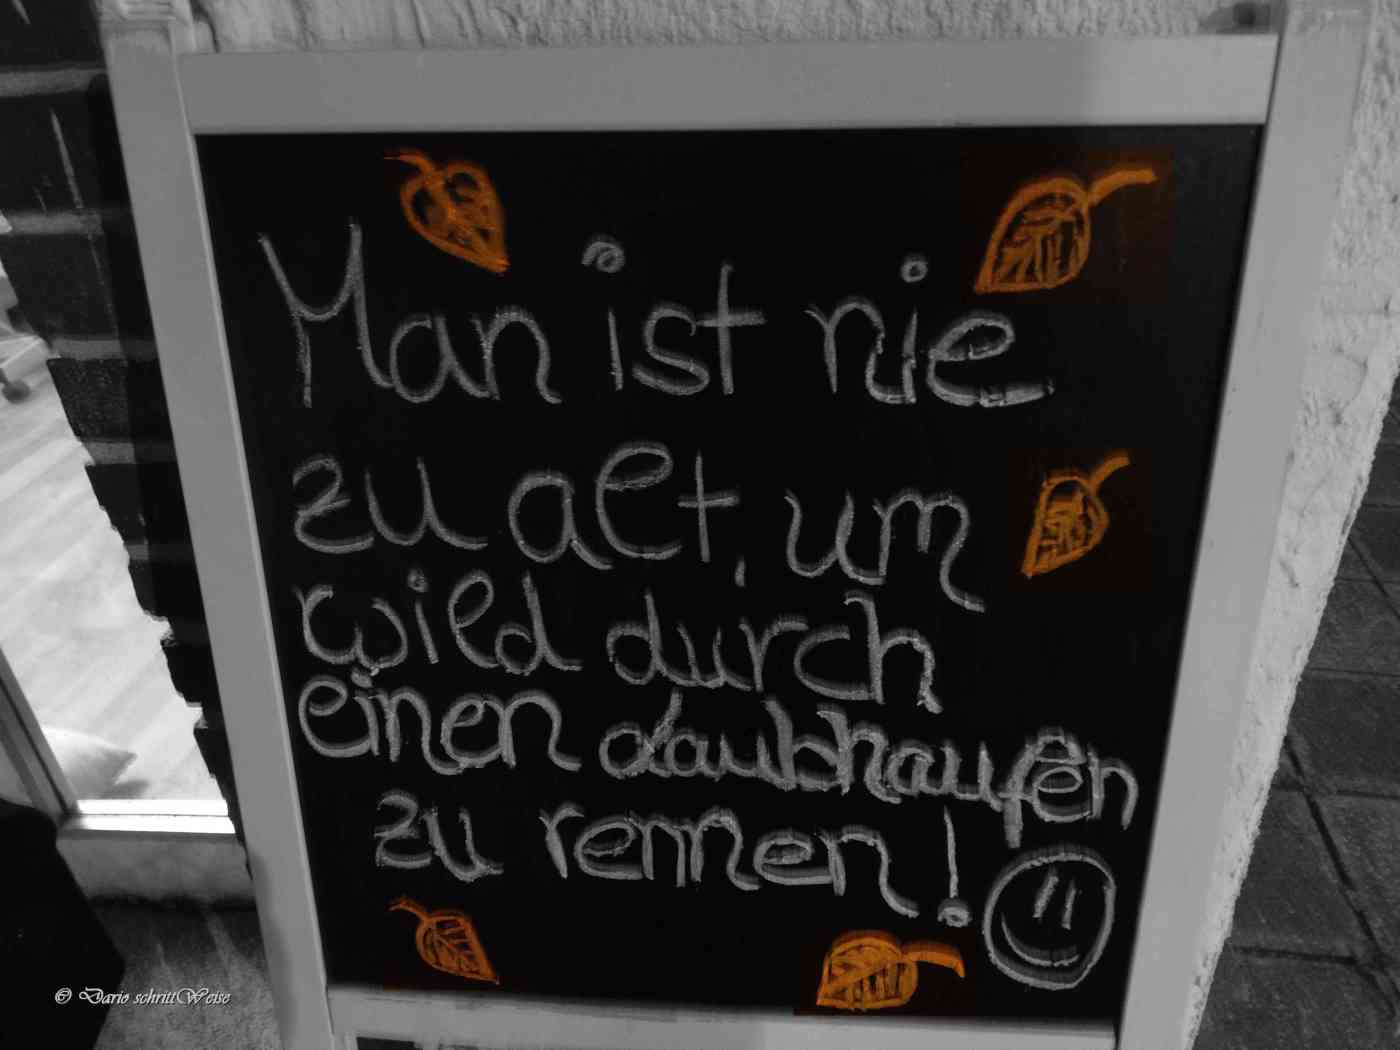 Man ist nie
zu alt, um
wild durch
einen Laubhaufen
zu rennen!
© Dario schrittWeise